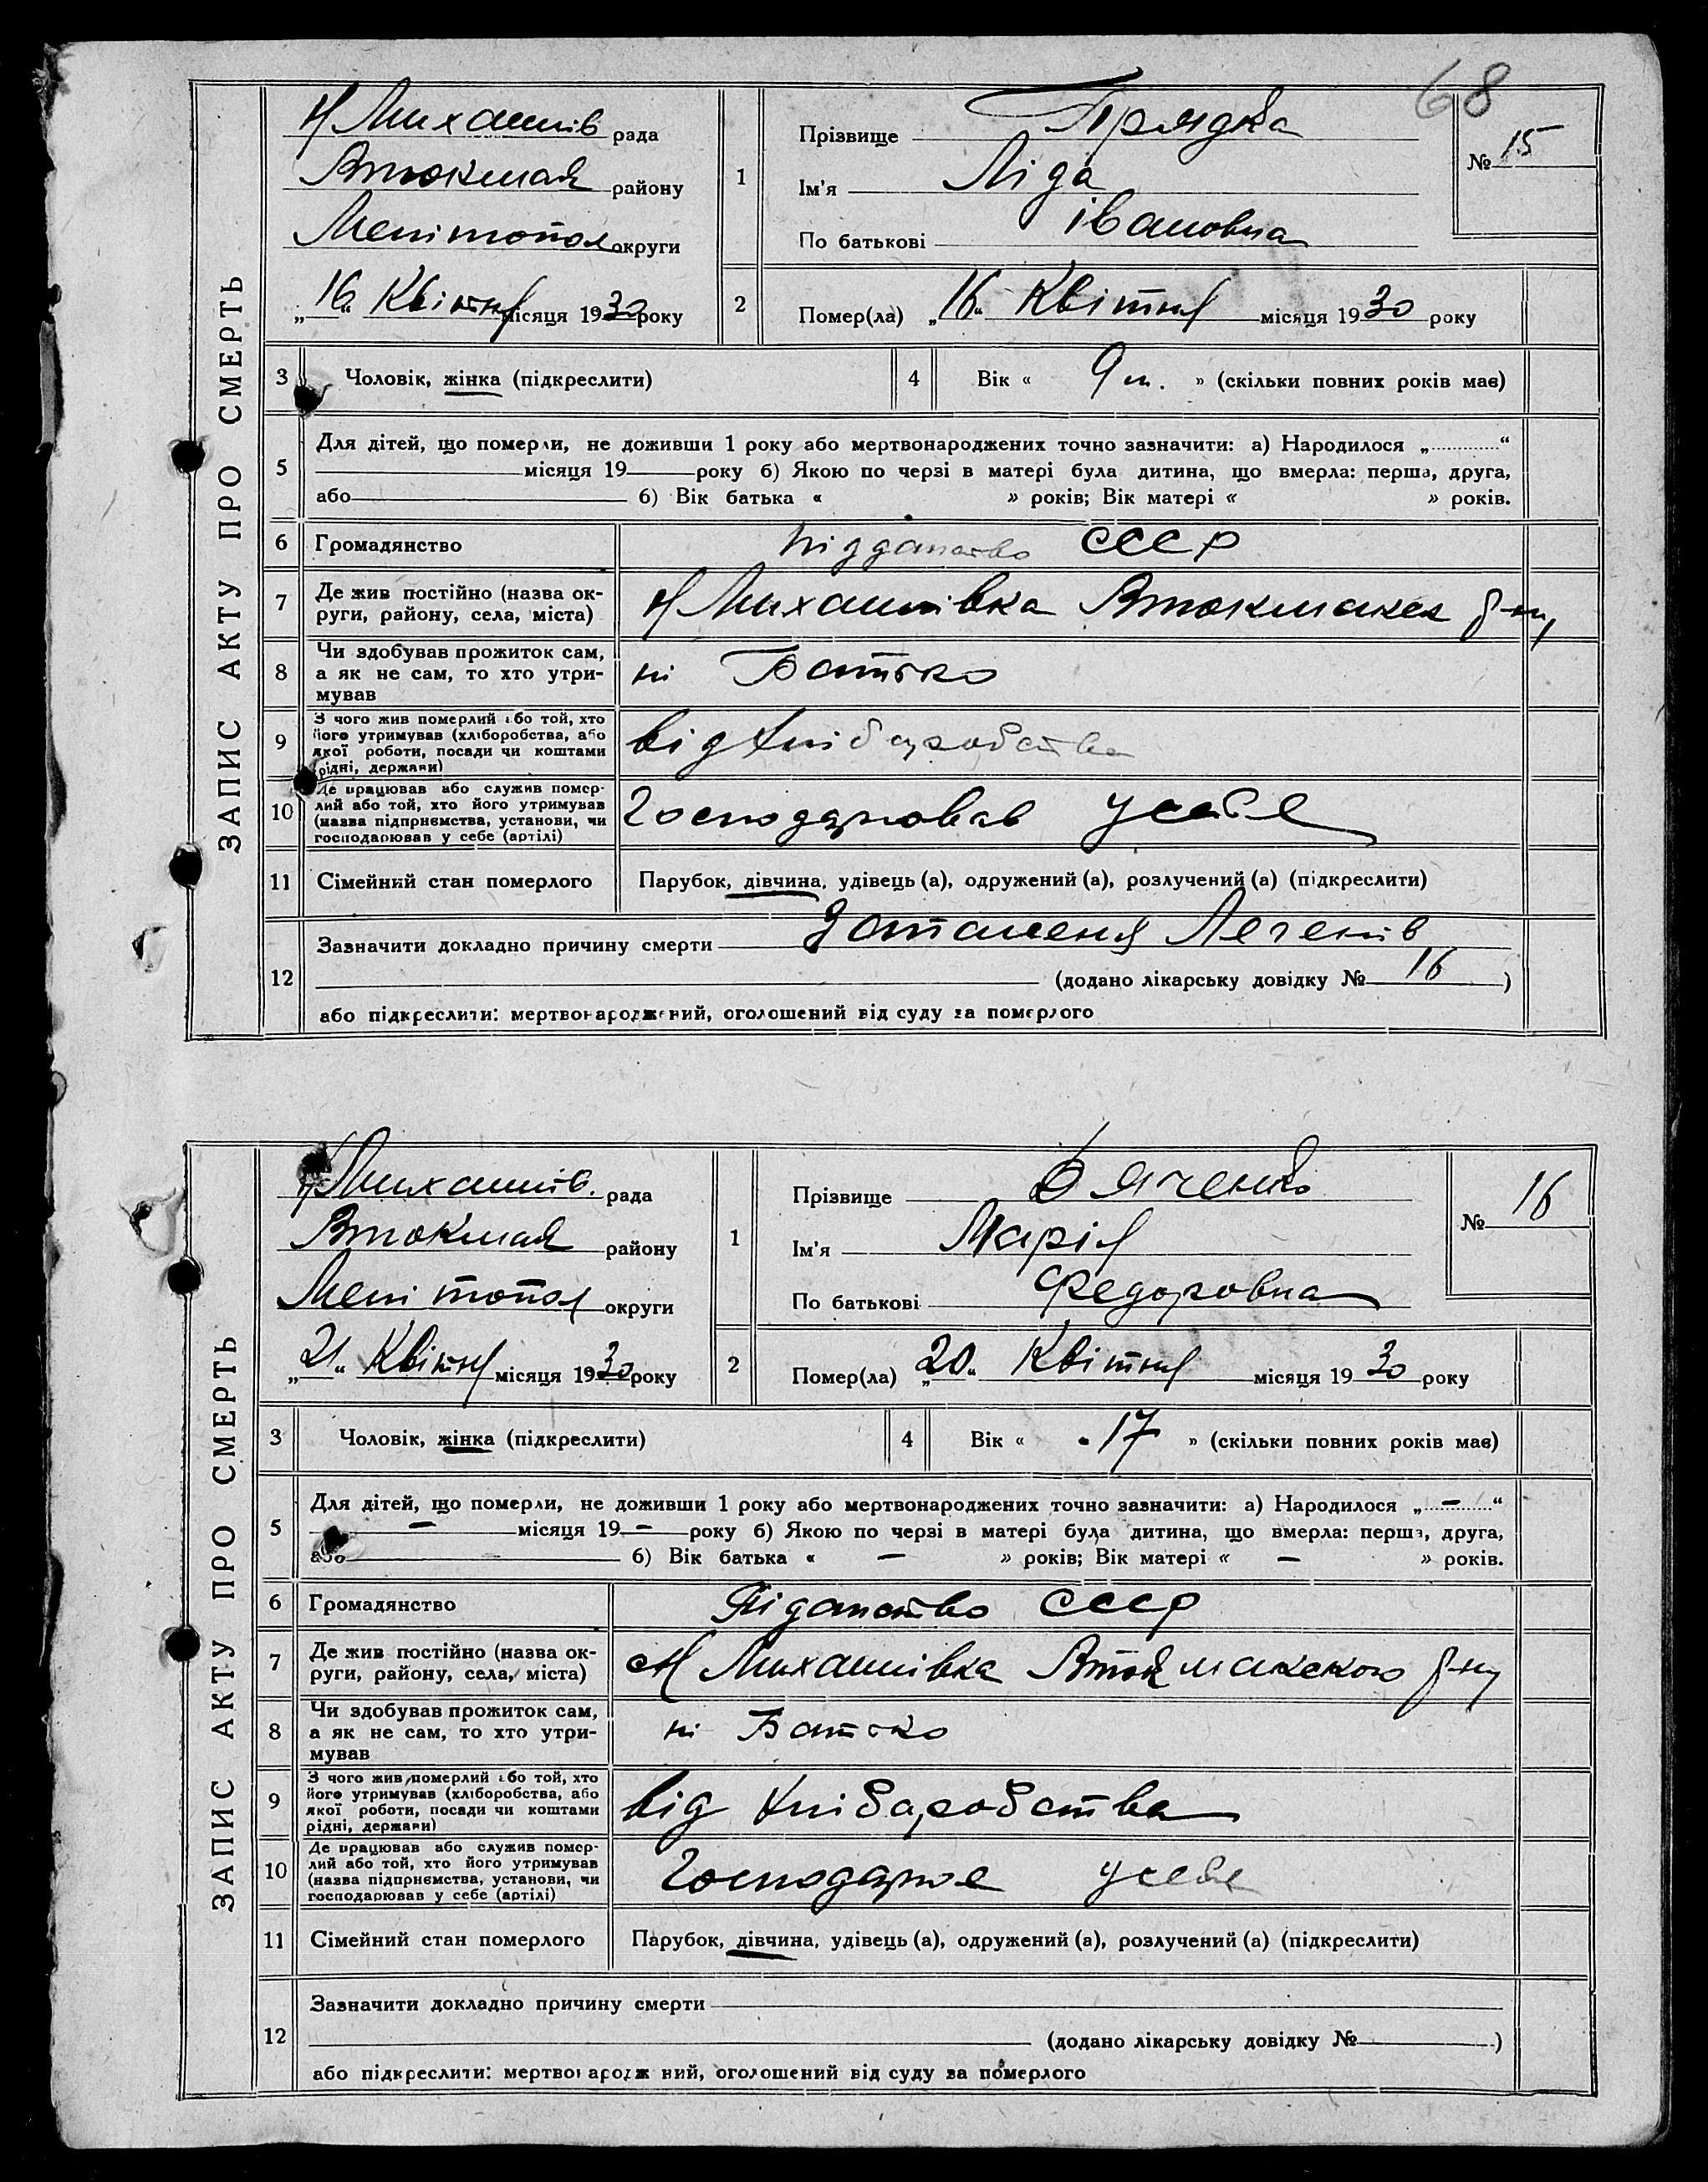 68
ЗАПИС АКТУ ПРО СМЕРТЬ
Н Михайлів рада
Втокмак району
Мелітопол округи
„16“ Квітня місяця 1930 року
1
Прізвище Прядка
Ім'я Ліда
По батькові Івановна
№ 15
2
Помер(ла) „16“ Квітня місяця 1930 року
3 Чоловік, жінка (підкреслити)
4 Вік « 9 м. » (скільки повних років має)
5 Для дітей, що померли, не доживши 1 року або мертвонароджених точно зазначити: а) Народилося „ “
місяця 19 року б) Якою по черзі в матері була дитина, що вмерла: перша, друга,
або б) Вік батька « » років; Вік матері « » років.
6 Громадянство Підданство СССР
7 Де жив постійно (назва ок-
руги, району, села, міста) Н Михайлівка Втокмакск р-ну
8 Чи здобував прожиток сам,
а як не сам, то хто утри-
мував
ні Батько
9 З чого жив померлий або той, хто
його утримував (хліборобства, або
якої роботи, посади чи коштами
рідні, держави)
від Хліборобства
10 Де працював або служив помер-
лий або той, хто його утримував
(назва підприємства, установи, чи
господарював у себе (артілі)
Господарював усебе
11 Сімейний стан померлого Парубок, дівчина, удівець (а), одружений (а), розлучений (а) (підкреслити)
12 Зазначити докладно причину смерти Запаленя Легенів
(додано лікарську довідку № 16 )
або підкреслити: мертвонароджений, оголошений від суду за померлого
ЗАПИС АКТУ ПРО СМЕРТЬ
Н Михайлів. рада
Втокмак району
Мелітопол округи
„21“ Квітня місяця 1930 року
1
Прізвище Дяченко
Ім'я Марія
По батькові Федоровна
№ 16
2
Помер(ла) „20“ Квітня місяця 1930 року
3 Чоловік, жінка (підкреслити)
4 Вік « 17 » (скільки повних років має)
5 Для дітей, що померли, не доживши 1 року або мертвонароджених точно зазначити: а) Народилося „ — “
— місяця 19 — року б) Якою по черзі в матері була дитина, що вмерла: перша, друга,
або б) Вік батька « — » років; Вік матері « — » років.
6 Громадянство Піданство СССР
7 Де жив постійно (назва ок-
руги, району, села, міста) Н Михайлівка Втокмакского р-ну
8 Чи здобував прожиток сам,
а як не сам, то хто утри-
мував
ні Батько
9 З чого жив померлий або той, хто
його утримував (хліборобства, або
якої роботи, посади чи коштами
рідні, держави)
від Хліборобства
10 Де працював або служив помер-
лий або той, хто його утримував
(назва підприємства, установи, чи
господарював у себе (артілі)
Господарює усебе
11 Сімейний стан померлого Парубок, дівчина, удівець (а), одружений (а), розлучений (а) (підкреслити)
12 Зазначити докладно причину смерти
(додано лікарську довідку № )
або підкреслити: мертвонароджений, оголошений від суду за померлого